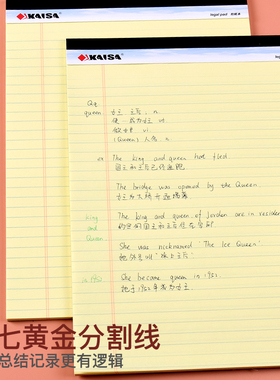 KAISA
legal pad
KAISA
legal pad
Q4
queen
女王 王后 n.
使…成为女王 vt.
做女王 vi.
(Queen) 人名 n.
The king and queen had fled
国王和王后已经逃跑
The bridge was opened by the Queen.
The king and queen of Jordan are in residence
king
and
Queen
She was nicknamed 'The Ice Queen'.
她绰号叫"冰上王后"
She became queen in 1952.
她于1952年成为女王
七黄金分割线
总结记录更有逻辑